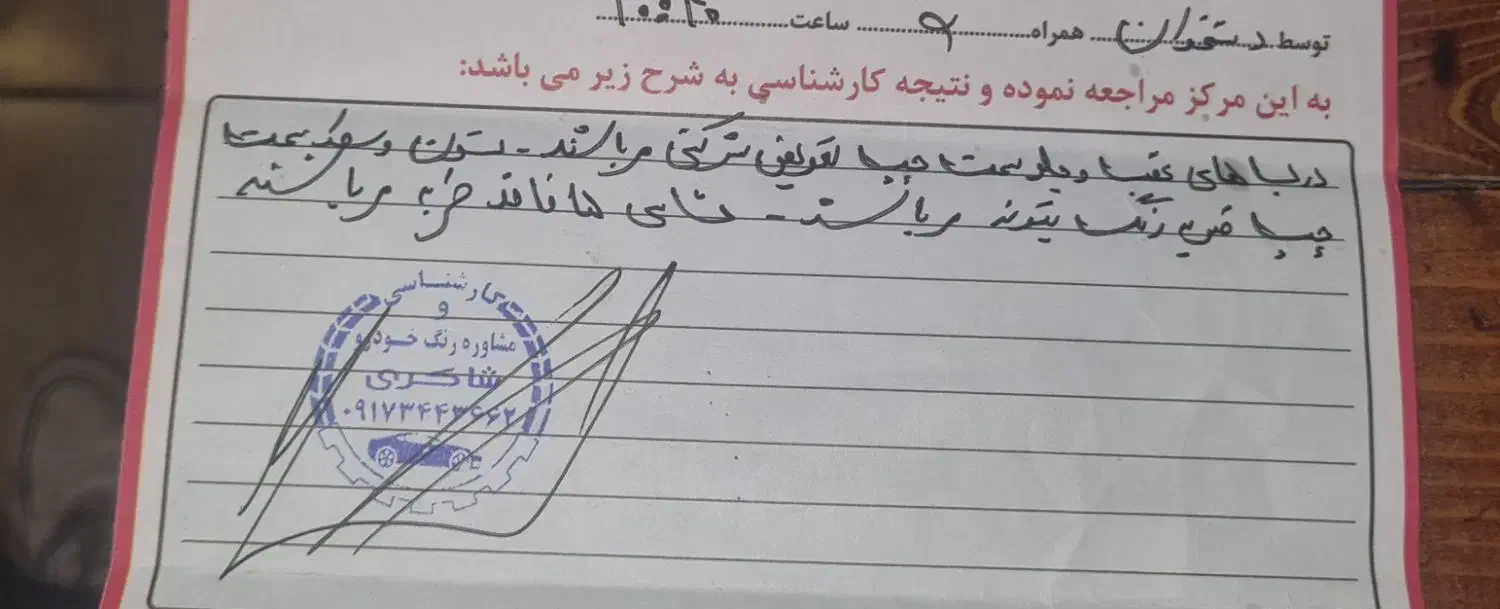 توسط همراه ساعت
به این مرکز مراجعه نموده و نتیجه کارشناسی به شرح زیر می باشد:
درب های عقب و جلو سمت چپ تعویض شرکتی میباشند - ستون و سمت
چپ رنگ میباشد - شاسی ها فاقد ضربه میباشند
کارشناسی
و
مشاوره رنگ خودرو
شاکری
۰۹۱۷۳۴۴۳۶۶۲